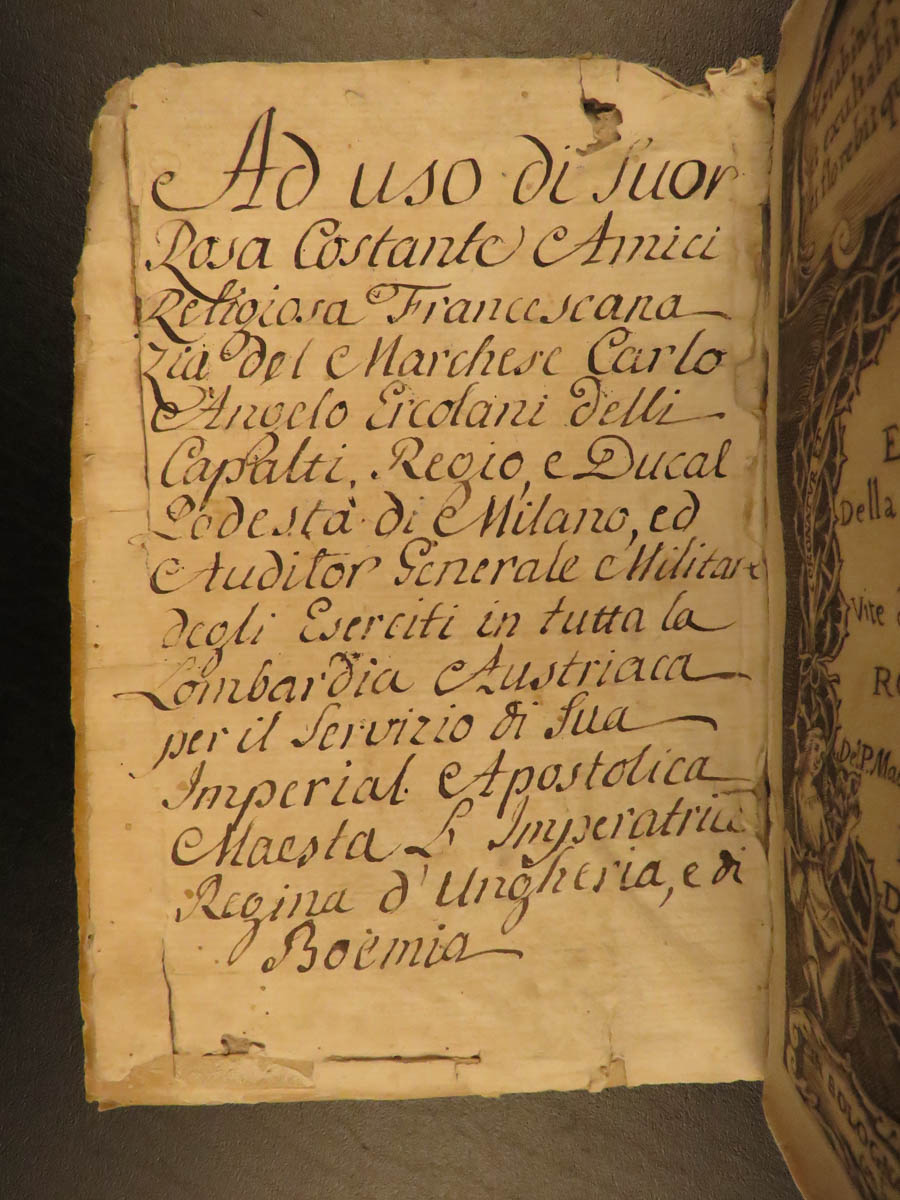 Ad uso di Suor
Rosa Costante Amici
Religiosa Francescana
Zia del Marchese Carlo
Angelo Ercolani delli
Capalti, Regio, e Ducal
Podestà di Milano, ed
Auditor Generale Militare
degli Eserciti in tutta la
Lombardia Austriaca
per il Servizio di Sua
Imperial Apostolica
Maesta L' Imperatrice
Regina d' Ungheria, e di
Boemia
florebit
CORONATUR
Della
Vite
Del P. Ma
BOLOGN